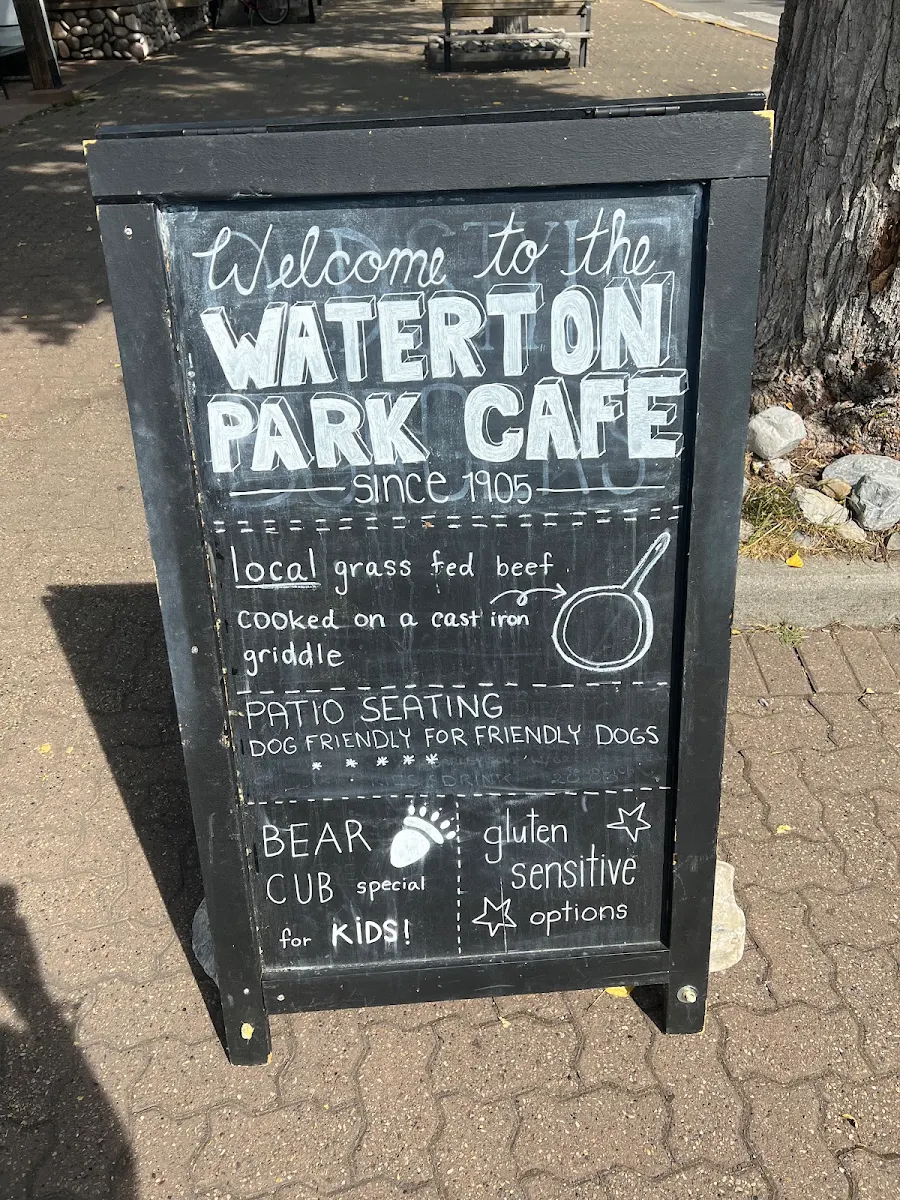 Welcome to the
WATERTON
PARK CAFE
since 1905
local grass fed beef
cooked on a cast iron
griddle
PATIO SEATING
DOG FRIENDLY FOR FRIENDLY DOGS
* * * * *
BEAR
CUB special
for KIDS!
gluten
sensitive
options